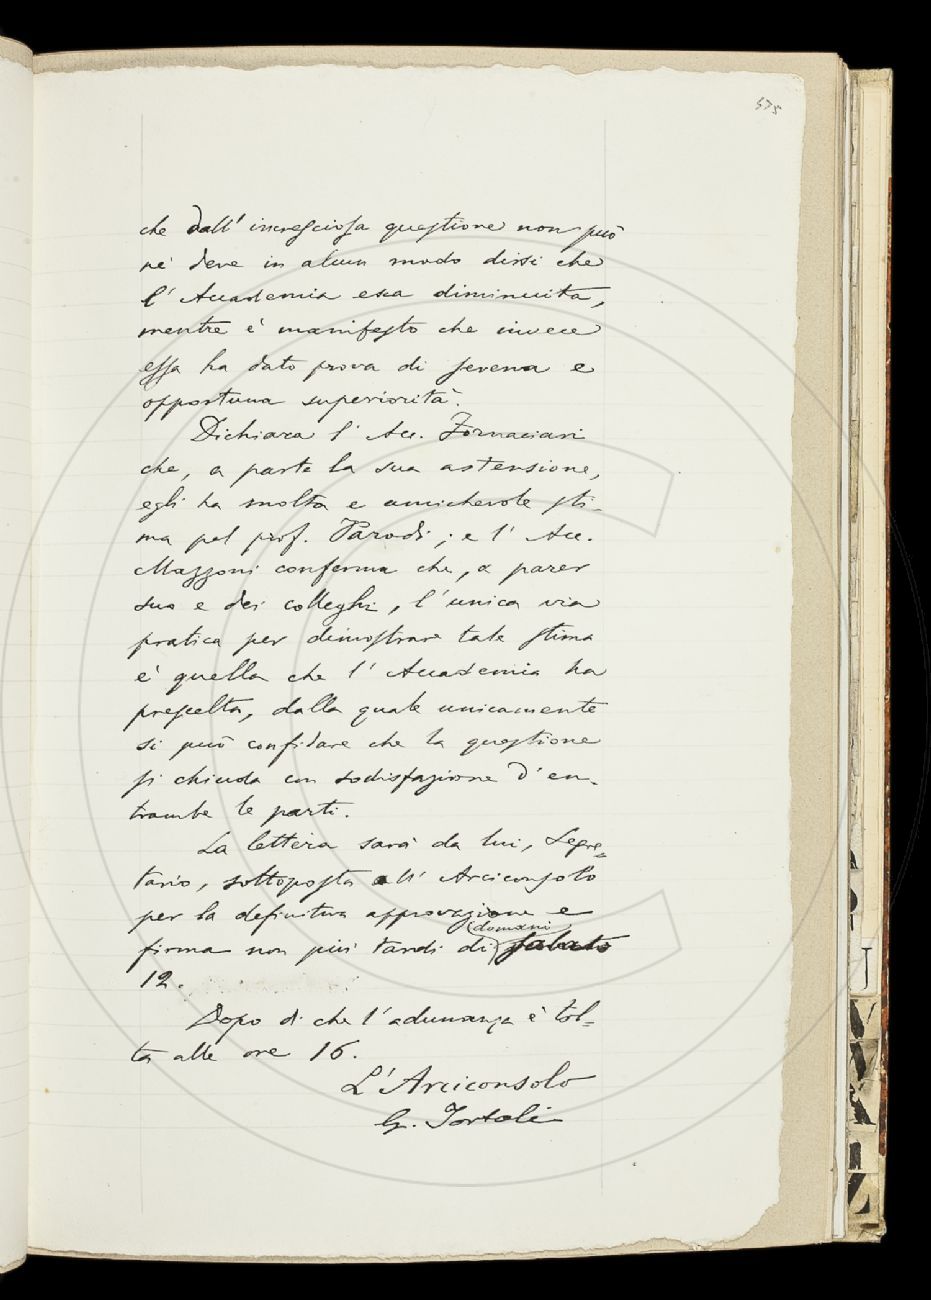 575
che dall' incresciosa questione non può
nè deve in alcun modo dirsi che
l'Accademia esca diminuita,
mentre è manifesto che invece
essa ha dato prova di serena e
opportuna superiorità.
Dichiara l'Acc. Fornaciari
che, a parte la sua astensione,
egli ha molta e amichevole sti-
ma pel prof. Parodi; e l'Acc.
Mazzoni conferma che, a parer
suo e dei colleghi, l'unica via
pratica per dimostrare tale stima
è quella che l'Accademia ha
prescelta, dalla quale unicamente
si può confidare che la questione
si chiuda con sodisfazione d'en-
trambe le parti.
La lettera sarà da lui, Segre-
tario, sottoposta all' Arciconsolo
per la definitiva approvazione e
firma non più tardi di (domani) sabato
12.
Dopo di che l'adunanza è tol-
ta alle ore 16.
L'Arciconsolo
G. Tortoli